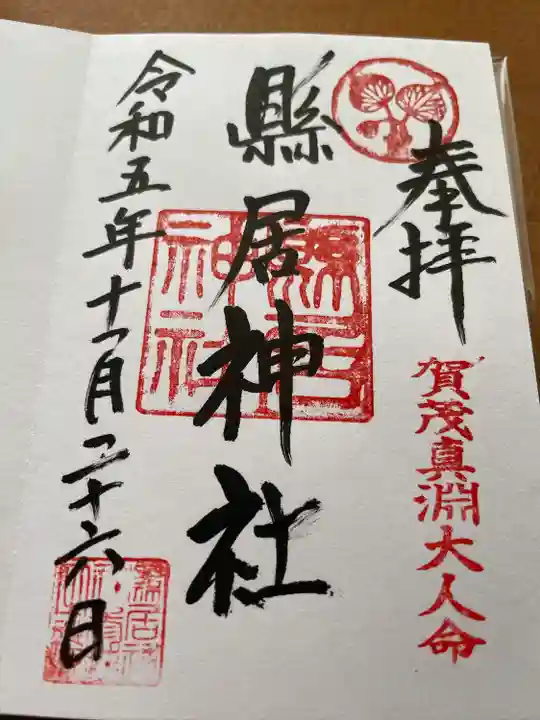 奉拝
賀茂真淵大人命
縣居神社
縣居神社
令和五年十一月二十六日